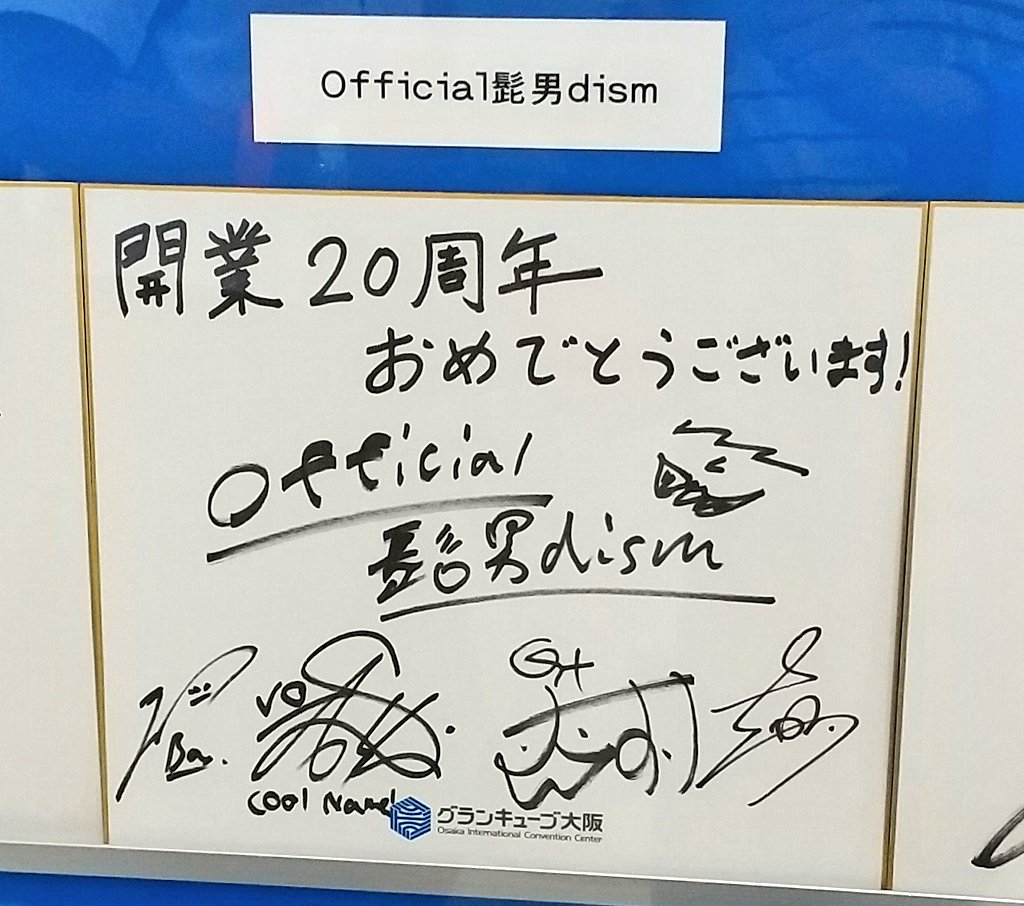 Official髭男dism
開業20周年
おめでとうございます!
Official
髭男dism
Ba.
vo
Gt
cool Name!
グランキューブ大阪
Osaka International Convention Center